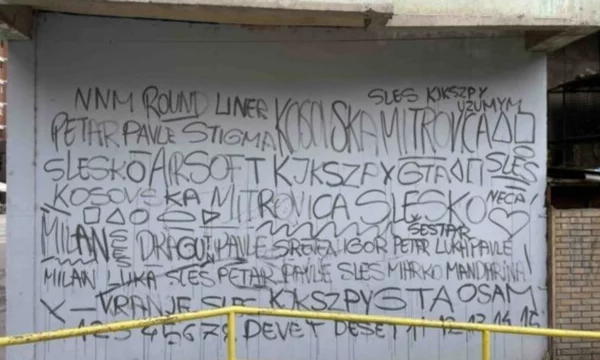 NNM ROUND LINER SLES KJKSZPY
UZUMYM
PETAR PAVLE STIGMA KOSOVSKA MITROVICA
SLESKO AIRSOFT KJKSZPY GTA SLES
KOSOVSKA MITROVICA SLESKO NECA
ŠESTAR
MILAN DRAGUTI PAVLE SRETEN IGOR PETAR LUKA PAVLE
MILAN LUKA SLES PETAR PAVLE SLES MARKO MANDARINA!
X VRANJE SLES KJKSZPYGTA OSAM
1 2 3 4 5 6 7 8 DEVET DESET 11 12 13 14 15